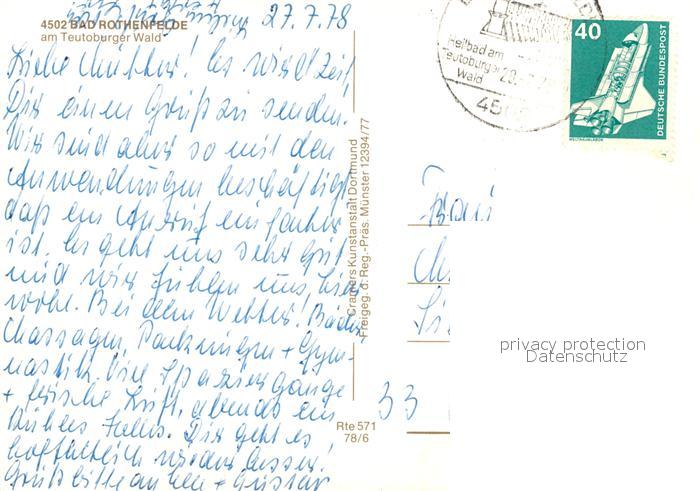 27.7.78
4502 BAD ROTHENFELDE
am Teutoburger Wald
Liebe Mutter! Es wird Zeit,
Dir einen Gruß zu senden.
Wir sind aber so mit den
Anwendungen beschäftigt,
daß ein Anruf einfacher
ist. Es geht uns sehr gut
und wir fühlen uns hier
wohl. Bei dem Wetter! Bäder
Massagen, Packungen + Gym-
nastik. Viele Spaziergänge
+ frische Luft, abends ein
kühles Helles. Dir geht es
hoffentlich wieder besser!
Grüß bitte
Cramers Kunstanstalt Dortmund
Freigeg. d. Reg.-Präs. Münster 12394/77
Rte 571
78/6
Heilbad am
Teutoburger
Wald
40
DEUTSCHE BUNDESPOST
WELTRAUMLABOR
Frau
33
privacy protection
Datenschutz